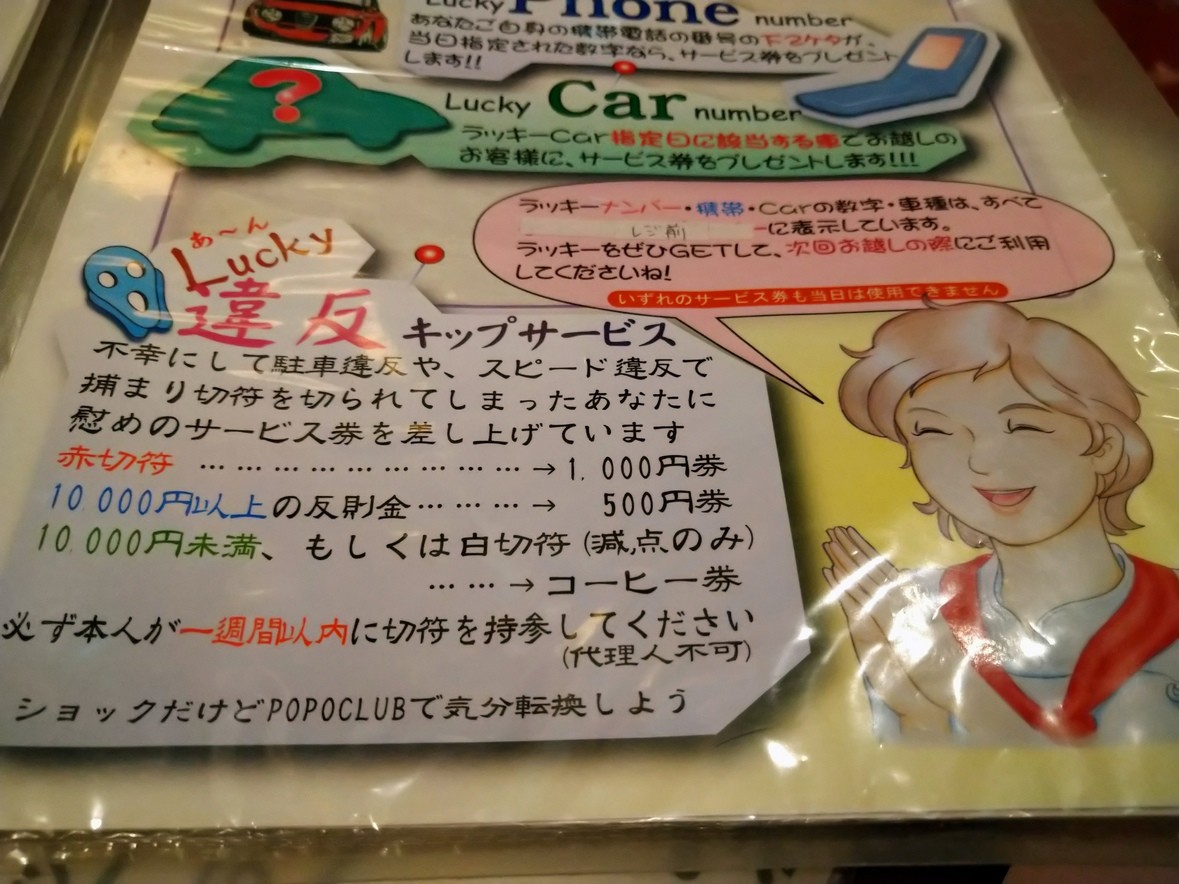 Lucky Phone number
あなたご自身の携帯電話の番号の下2ケタが、
当日指定された数字なら、サービス券をプレゼント
します!!
?
Lucky Car number
ラッキーCar指定日に該当する車でお越しの
お客様に、サービス券をプレゼントします!!!
ラッキーナンバー・携帯・Carの数字・車種は、すべて
レジ前に表示しています。
ラッキーをぜひGETして、次回お越しの際にご利用
してくださいね!
いずれのサービス券も当日は使用できません
あ〜ん
Lucky
違反キップサービス
不幸にして駐車違反や、スピード違反で
捕まり切符を切られてしまったあなたに
慰めのサービス券を差し上げています
赤切符 ………………………→1,000円券
10,000円以上の反則金……→ 500円券
10,000円未満、もしくは白切符(減点のみ)
……→コーヒー券
必ず本人が一週間以内に切符を持参してください
(代理人不可)
ショックだけどPOPOCLUBで気分転換しよう